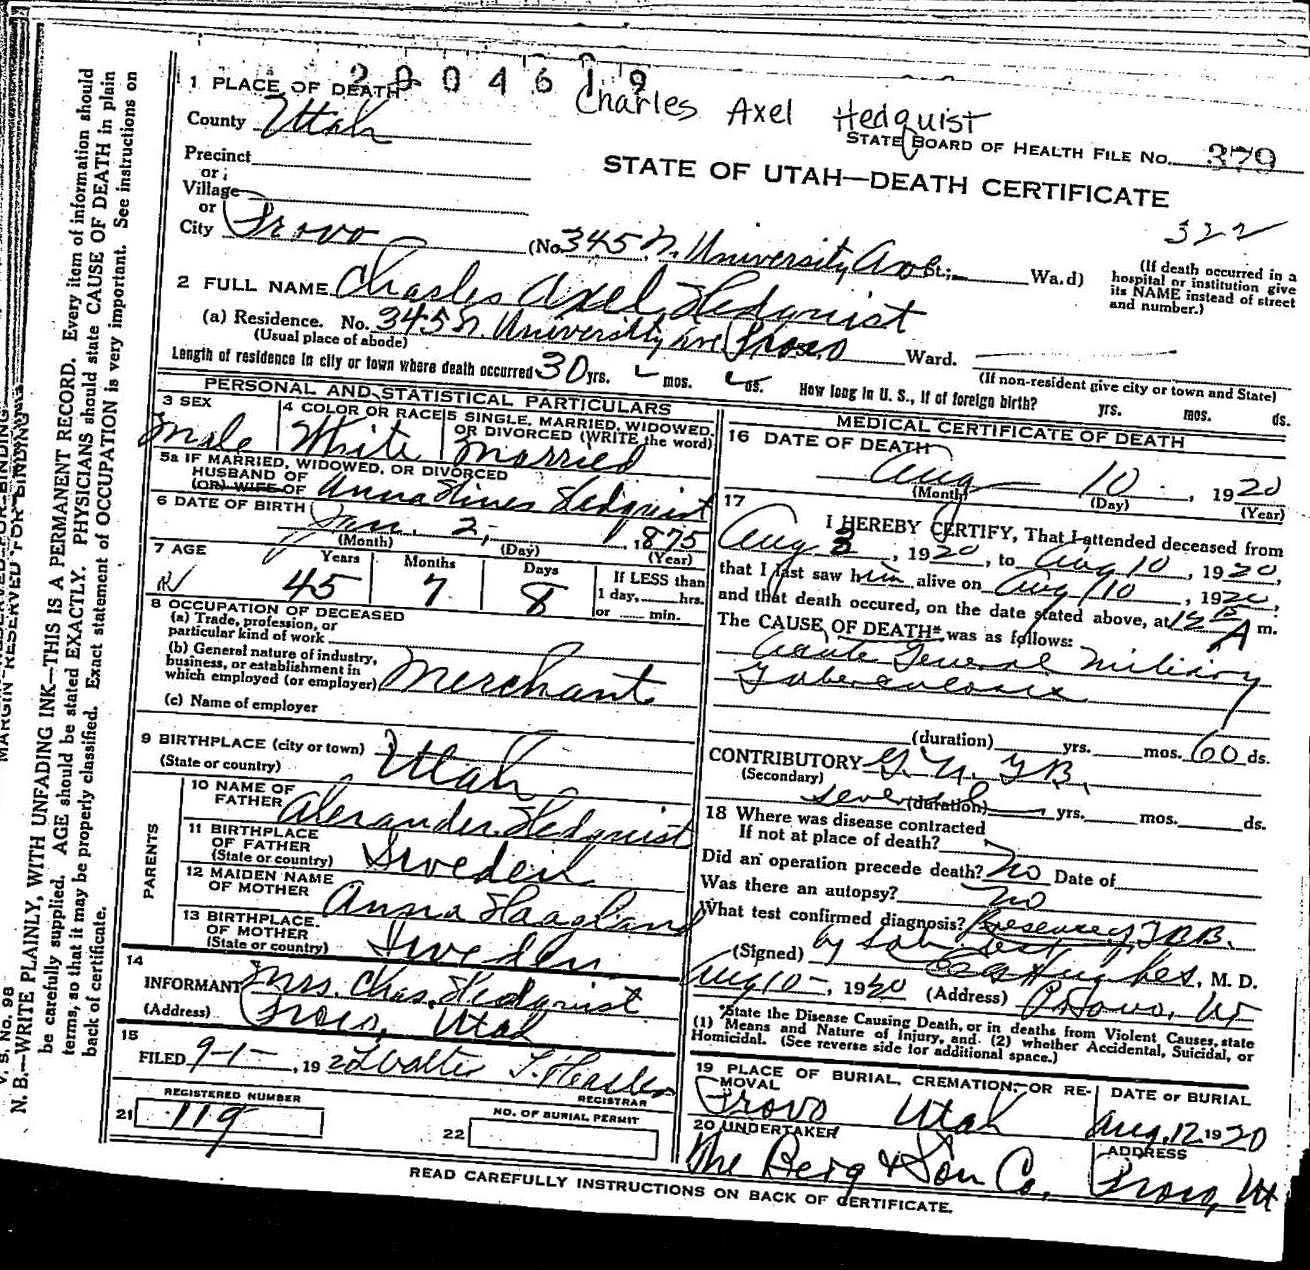 2004619
Charles Axel Hedquist
1 PLACE OF DEATH
County Utah
STATE BOARD OF HEALTH FILE No. 379
Precinct
or
Village
or
City Provo
STATE OF UTAH—DEATH CERTIFICATE
322
(No. 345 N. University Ave St.; Wa.d)
(If death occurred in a hospital or institution give its NAME instead of street and number.)
2 FULL NAME Charles Axel Hedquist
(a) Residence. No. 345 N. University Ave Provo Ward.
(Usual place of abode)
(If non-resident give city or town and State)
Length of residence in city or town where death occurred 30 yrs. mos. ds. How long in U. S., if of foreign birth? yrs. mos. ds.
PERSONAL AND STATISTICAL PARTICULARS
3 SEX Male
4 COLOR OR RACE White
5 SINGLE, MARRIED, WIDOWED, OR DIVORCED (WRITE the word) Married
5a IF MARRIED, WIDOWED, OR DIVORCED
HUSBAND OF
(OR) WIFE OF Anna Hines Hedquist
6 DATE OF BIRTH Jan. 2, 1875
(Month) (Day) (Year)
7 AGE Years 45 Months 7 Days 8
If LESS than
1 day, hrs.
or min.
8 OCCUPATION OF DECEASED
(a) Trade, profession, or
particular kind of work
(b) General nature of industry,
business, or establishment in
which employed (or employer) Merchant
(c) Name of employer
9 BIRTHPLACE (city or town)
(State or country) Utah
PARENTS
10 NAME OF
FATHER Alexander Hedquist
11 BIRTHPLACE
OF FATHER
(State or country) Sweden
12 MAIDEN NAME
OF MOTHER Anna
13 BIRTHPLACE
OF MOTHER
(State or country) Sweden
14
INFORMANT Mrs. Chas. Hedquist
(Address) Provo, Utah
15
FILED 9-1-, 1920 Walter T.
REGISTRAR
REGISTERED NUMBER
21 119
NO. OF BURIAL PERMIT
22
MEDICAL CERTIFICATE OF DEATH
16 DATE OF DEATH
Aug 10, 1920
(Month) (Day) (Year)
17
I HEREBY CERTIFY, That I attended deceased from
Aug, 1920, to Aug 10, 1920,
that I last saw him alive on Aug 10, 1920,
and that death occured, on the date stated above, at 12 A m.
The CAUSE OF DEATH* was as follows:
Acute General Miliary
Tuberculosis
(duration) yrs. mos. 60 ds.
CONTRIBUTORY G. U. TB.
(Secondary)
several (duration) yrs. mos. ds.
18 Where was disease contracted
If not at place of death?
Did an operation precede death? No Date of
Was there an autopsy? No
What test confirmed diagnosis? Presence of T.B.B.
by Lab Test
(Signed) Hughes, M. D.
Aug 10-, 1920 (Address) Provo, Ut
*State the Disease Causing Death, or in deaths from Violent Causes, state
(1) Means and Nature of Injury, and (2) whether Accidental, Suicidal, or
Homicidal. (See reverse side for additional space.)
19 PLACE OF BURIAL, CREMATION, OR RE-
MOVAL
Provo Utah
DATE OF BURIAL
Aug. 12 1920
20 UNDERTAKER
The Berg & Son Co.
ADDRESS
Provo, Ut
READ CAREFULLY INSTRUCTIONS ON BACK OF CERTIFICATE.
V. S. No. 98
MARGIN RESERVED FOR BINDING
N. B.—WRITE PLAINLY, WITH UNFADING INK—THIS IS A PERMANENT RECORD. Every item of information should
be carefully supplied. AGE should be stated EXACTLY. PHYSICIANS should state CAUSE OF DEATH in plain
terms, so that it may be properly classified. Exact statement of OCCUPATION is very important. See instructions on
back of certificate.